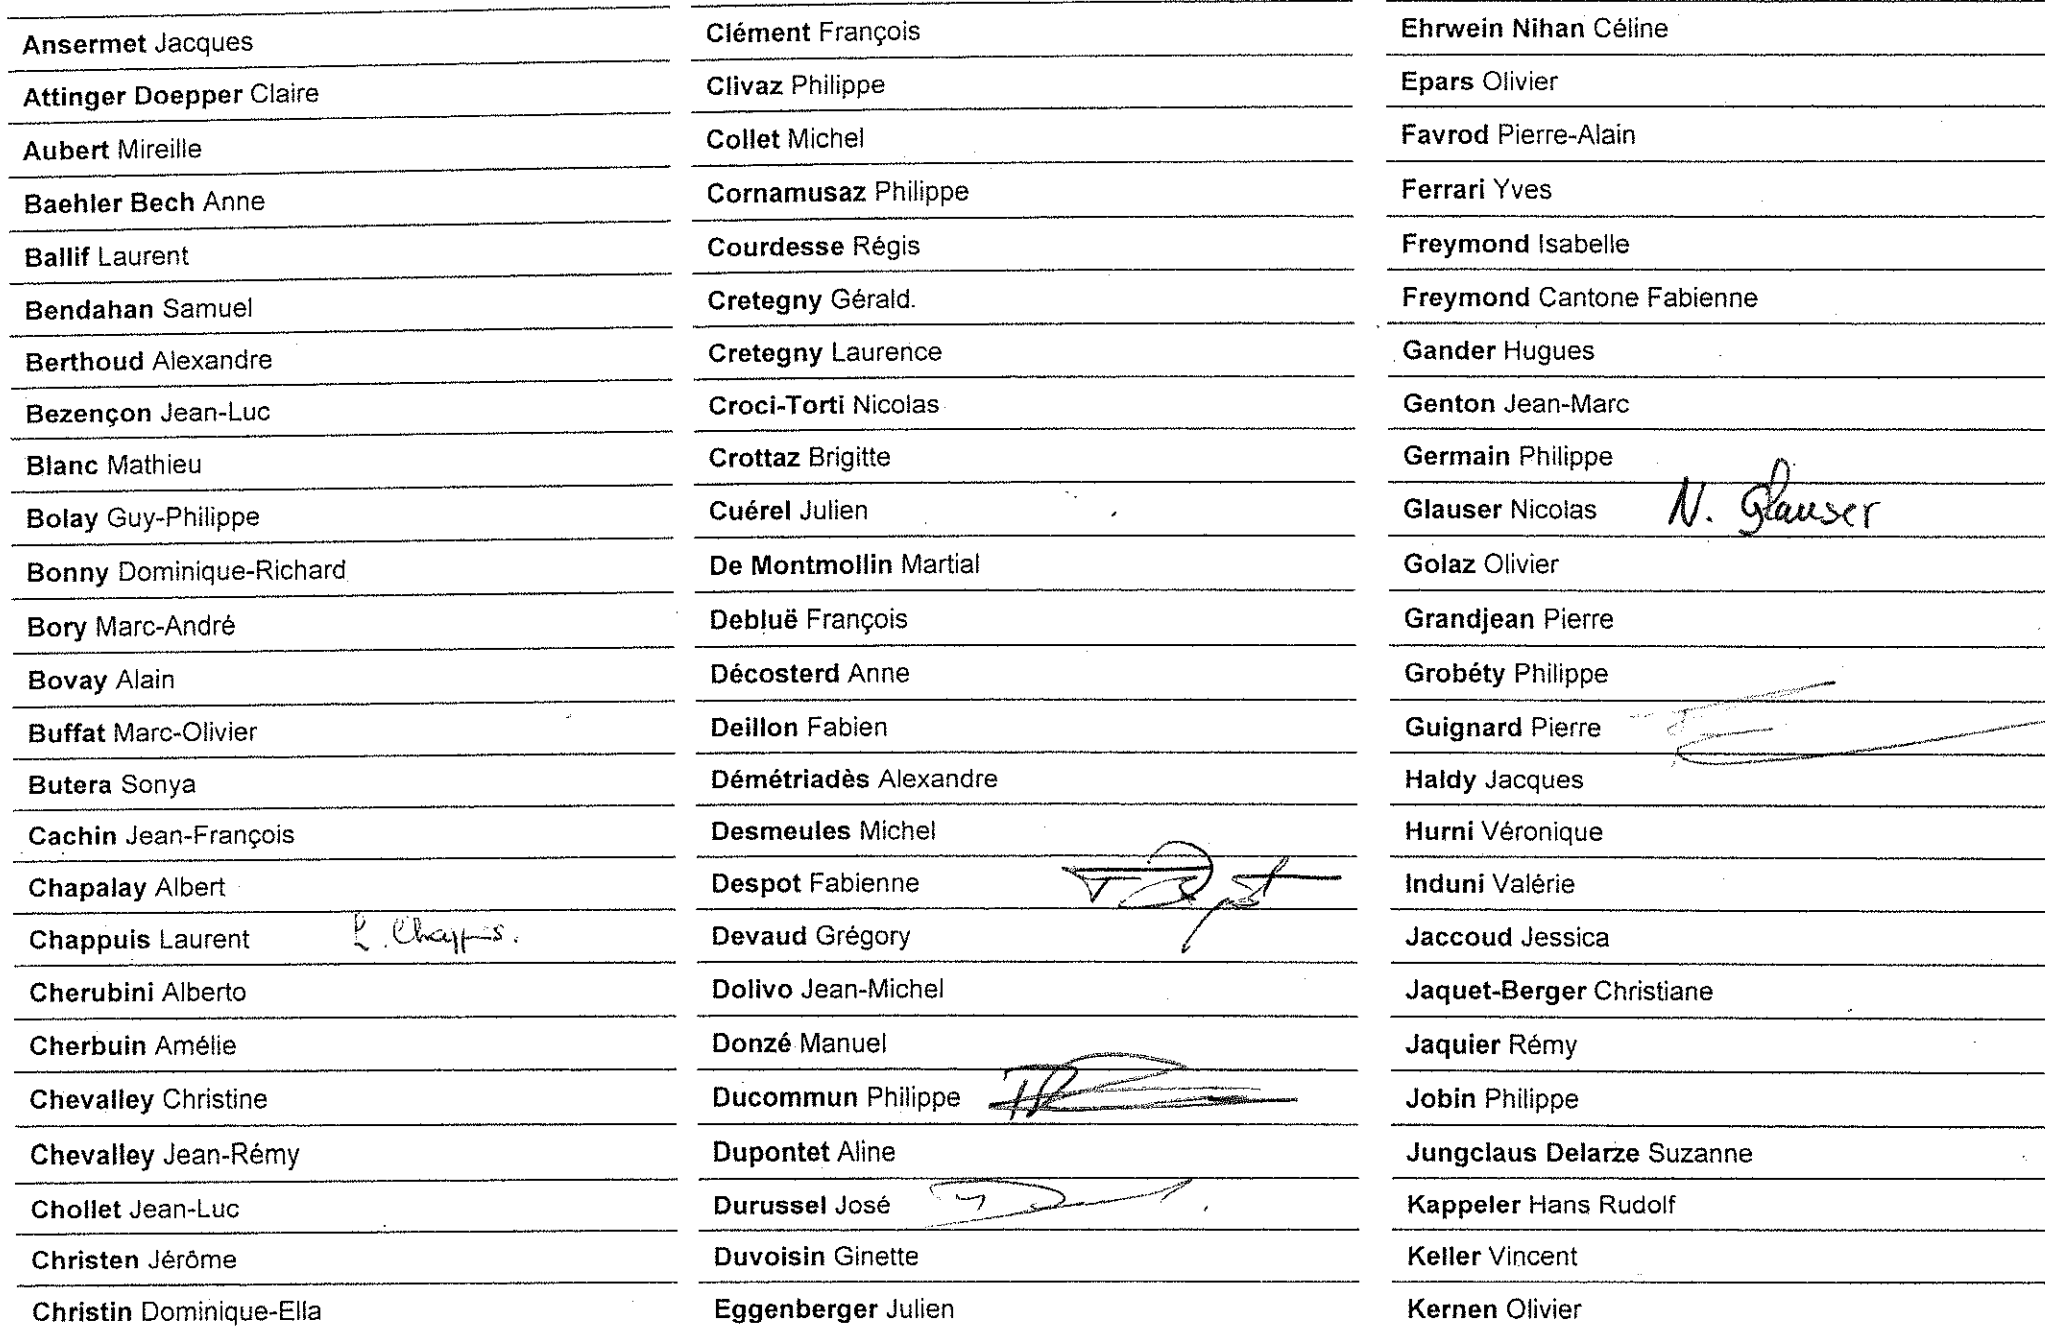 Ansermet Jacques
Attinger Doepper Claire
Aubert Mireille
Baehler Bech Anne
Ballif Laurent
Bendahan Samuel
Berthoud Alexandre
Bezençon Jean-Luc
Blanc Mathieu
Bolay Guy-Philippe
Bonny Dominique-Richard
Bory Marc-André
Bovay Alain
Buffat Marc-Olivier
Butera Sonya
Cachin Jean-François
Chapalay Albert
Chappuis Laurent L. Chappuis.
Cherubini Alberto
Cherbuin Amélie
Chevalley Christine
Chevalley Jean-Rémy
Chollet Jean-Luc
Christen Jérôme
Christin Dominique-Ella
Clément François
Clivaz Philippe
Collet Michel
Cornamusaz Philippe
Courdesse Régis
Cretegny Gérald.
Cretegny Laurence
Croci-Torti Nicolas
Crottaz Brigitte
Cuérel Julien
De Montmollin Martial
Debluë François
Décosterd Anne
Deillon Fabien
Démétriadès Alexandre
Desmeules Michel
Despot Fabienne
Devaud Grégory
Dolivo Jean-Michel
Donzé Manuel
Ducommun Philippe
Dupontet Aline
Durussel José
Duvoisin Ginette
Eggenberger Julien
Ehrwein Nihan Céline
Epars Olivier
Favrod Pierre-Alain
Ferrari Yves
Freymond Isabelle
Freymond Cantone Fabienne
Gander Hugues
Genton Jean-Marc
Germain Philippe
Glauser Nicolas N. Glauser
Golaz Olivier
Grandjean Pierre
Grobéty Philippe
Guignard Pierre
Haldy Jacques
Hurni Véronique
Induni Valérie
Jaccoud Jessica
Jaquet-Berger Christiane
Jaquier Rémy
Jobin Philippe
Jungclaus Delarze Suzanne
Kappeler Hans Rudolf
Keller Vincent
Kernen Olivier